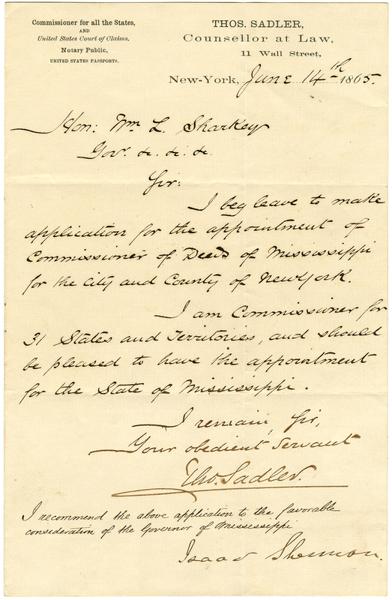 Commissioner for all the States,
AND
United States Court of Claims,
Notary Public,
UNITED STATES PASSPORTS.
THOS. SADLER,
Counsellor at Law,
11 Wall Street,
New-York, June 14th 1865.
Hon: Wm L. Sharkey
Gov. &. &. &.
Sir:
I beg leave to make
application for the appointment of
Commissioner of Deeds of Mississippi
for the City and County of New York.
I am Commissioner for
31 States and Territories, and should
be pleased to have the appointment
for the State of Mississippi.
I remain, Sir,
Your obedient Servant
Tho. Sadler.
I recommend the above application to the favorable
consideration of the Governor of Mississippi
Isaac Sherman.